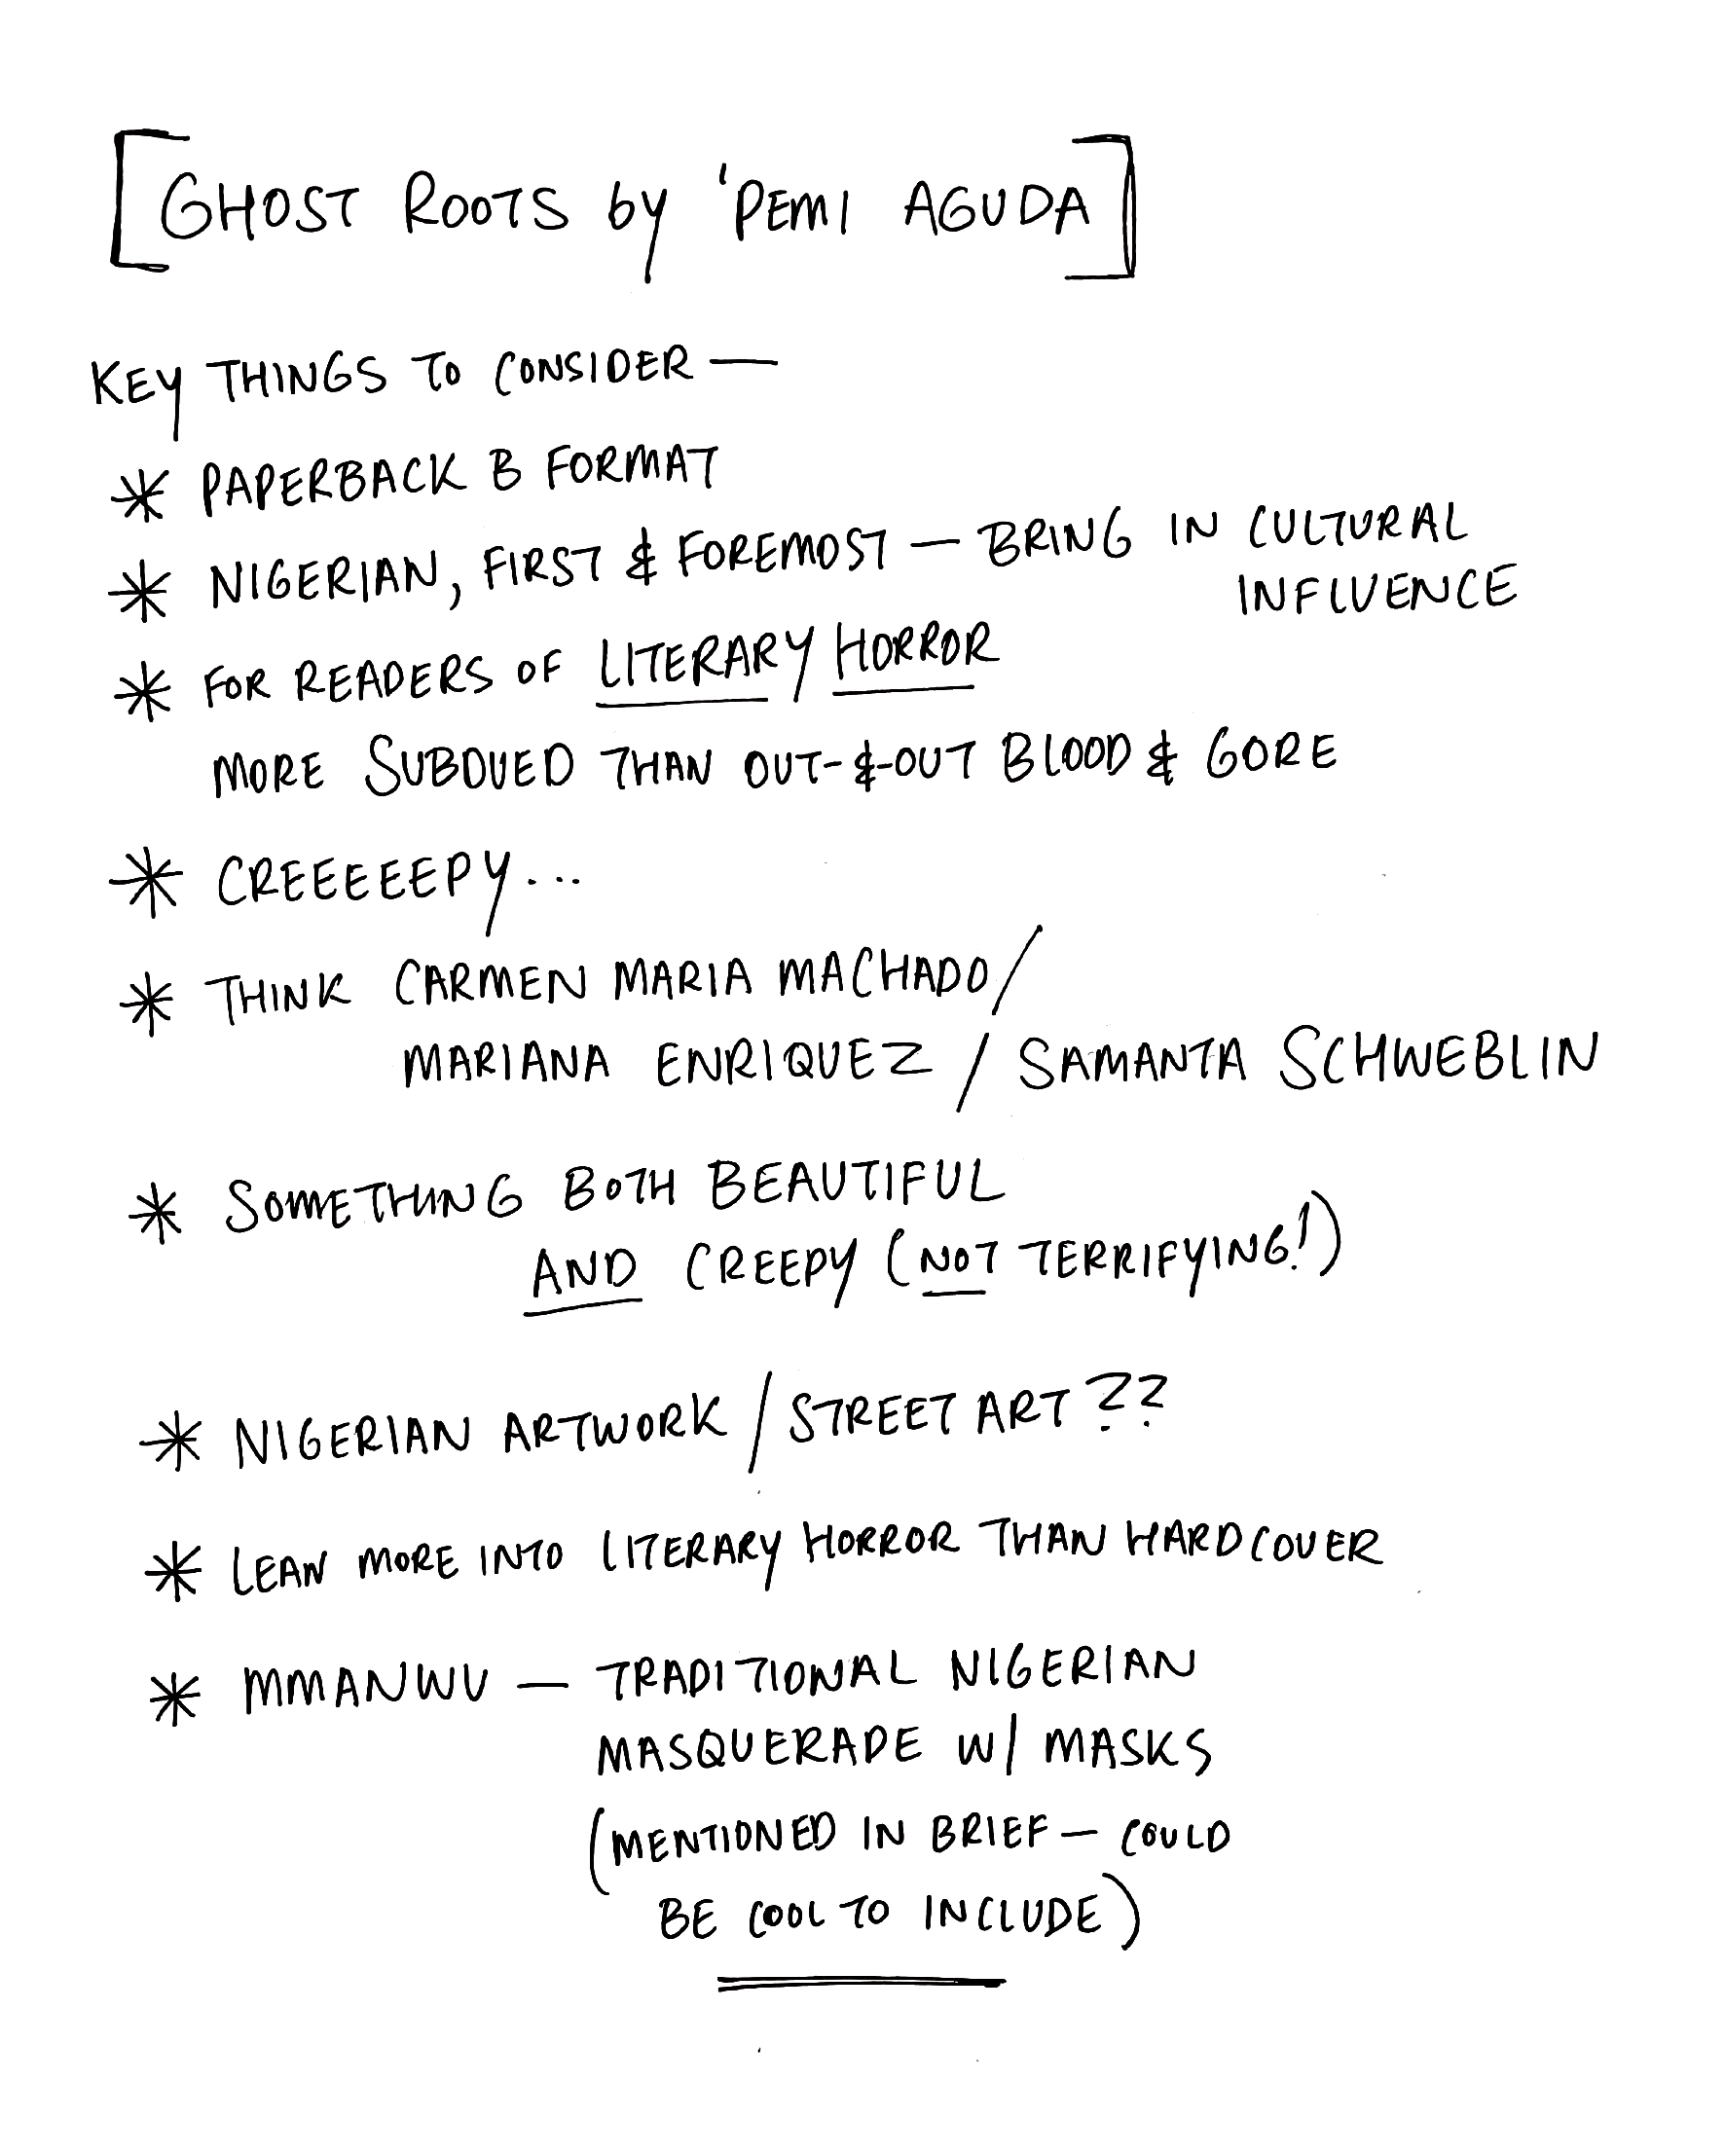 [GHOST ROOTS by 'PEMI AGUDA]
KEY THINGS TO CONSIDER —
* PAPERBACK B FORMAT
* NIGERIAN, FIRST & FOREMOST — BRING IN CULTURAL
INFLUENCE
* FOR READERS OF LITERARY HORROR
MORE SUBDUED THAN OUT-&-OUT BLOOD & GORE
* CREEEEEPY...
* THINK CARMEN MARIA MACHADO/
MARIANA ENRIQUEZ / SAMANTA SCHWEBLIN
* SOMETHING BOTH BEAUTIFUL
AND CREEPY (NOT TERRIFYING!)
* NIGERIAN ARTWORK / STREET ART ??
* LEAN MORE INTO LITERARY HORROR THAN HARDCOVER
* MMANWU — TRADITIONAL NIGERIAN
MASQUERADE W/ MASKS
(MENTIONED IN BRIEF — COULD
BE COOL TO INCLUDE)